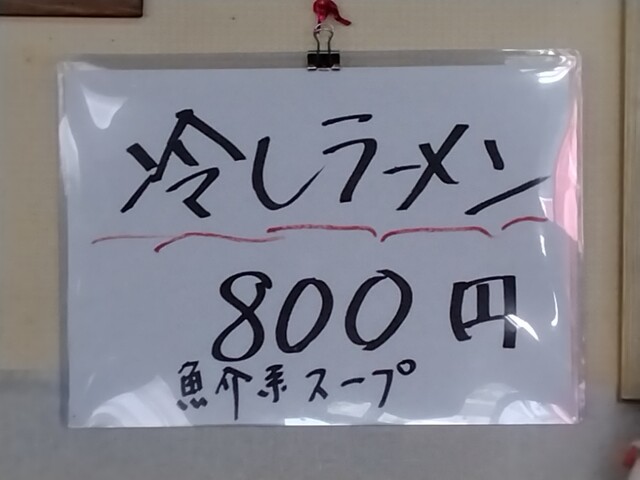 冷しラーメン
800円
魚介系スープ